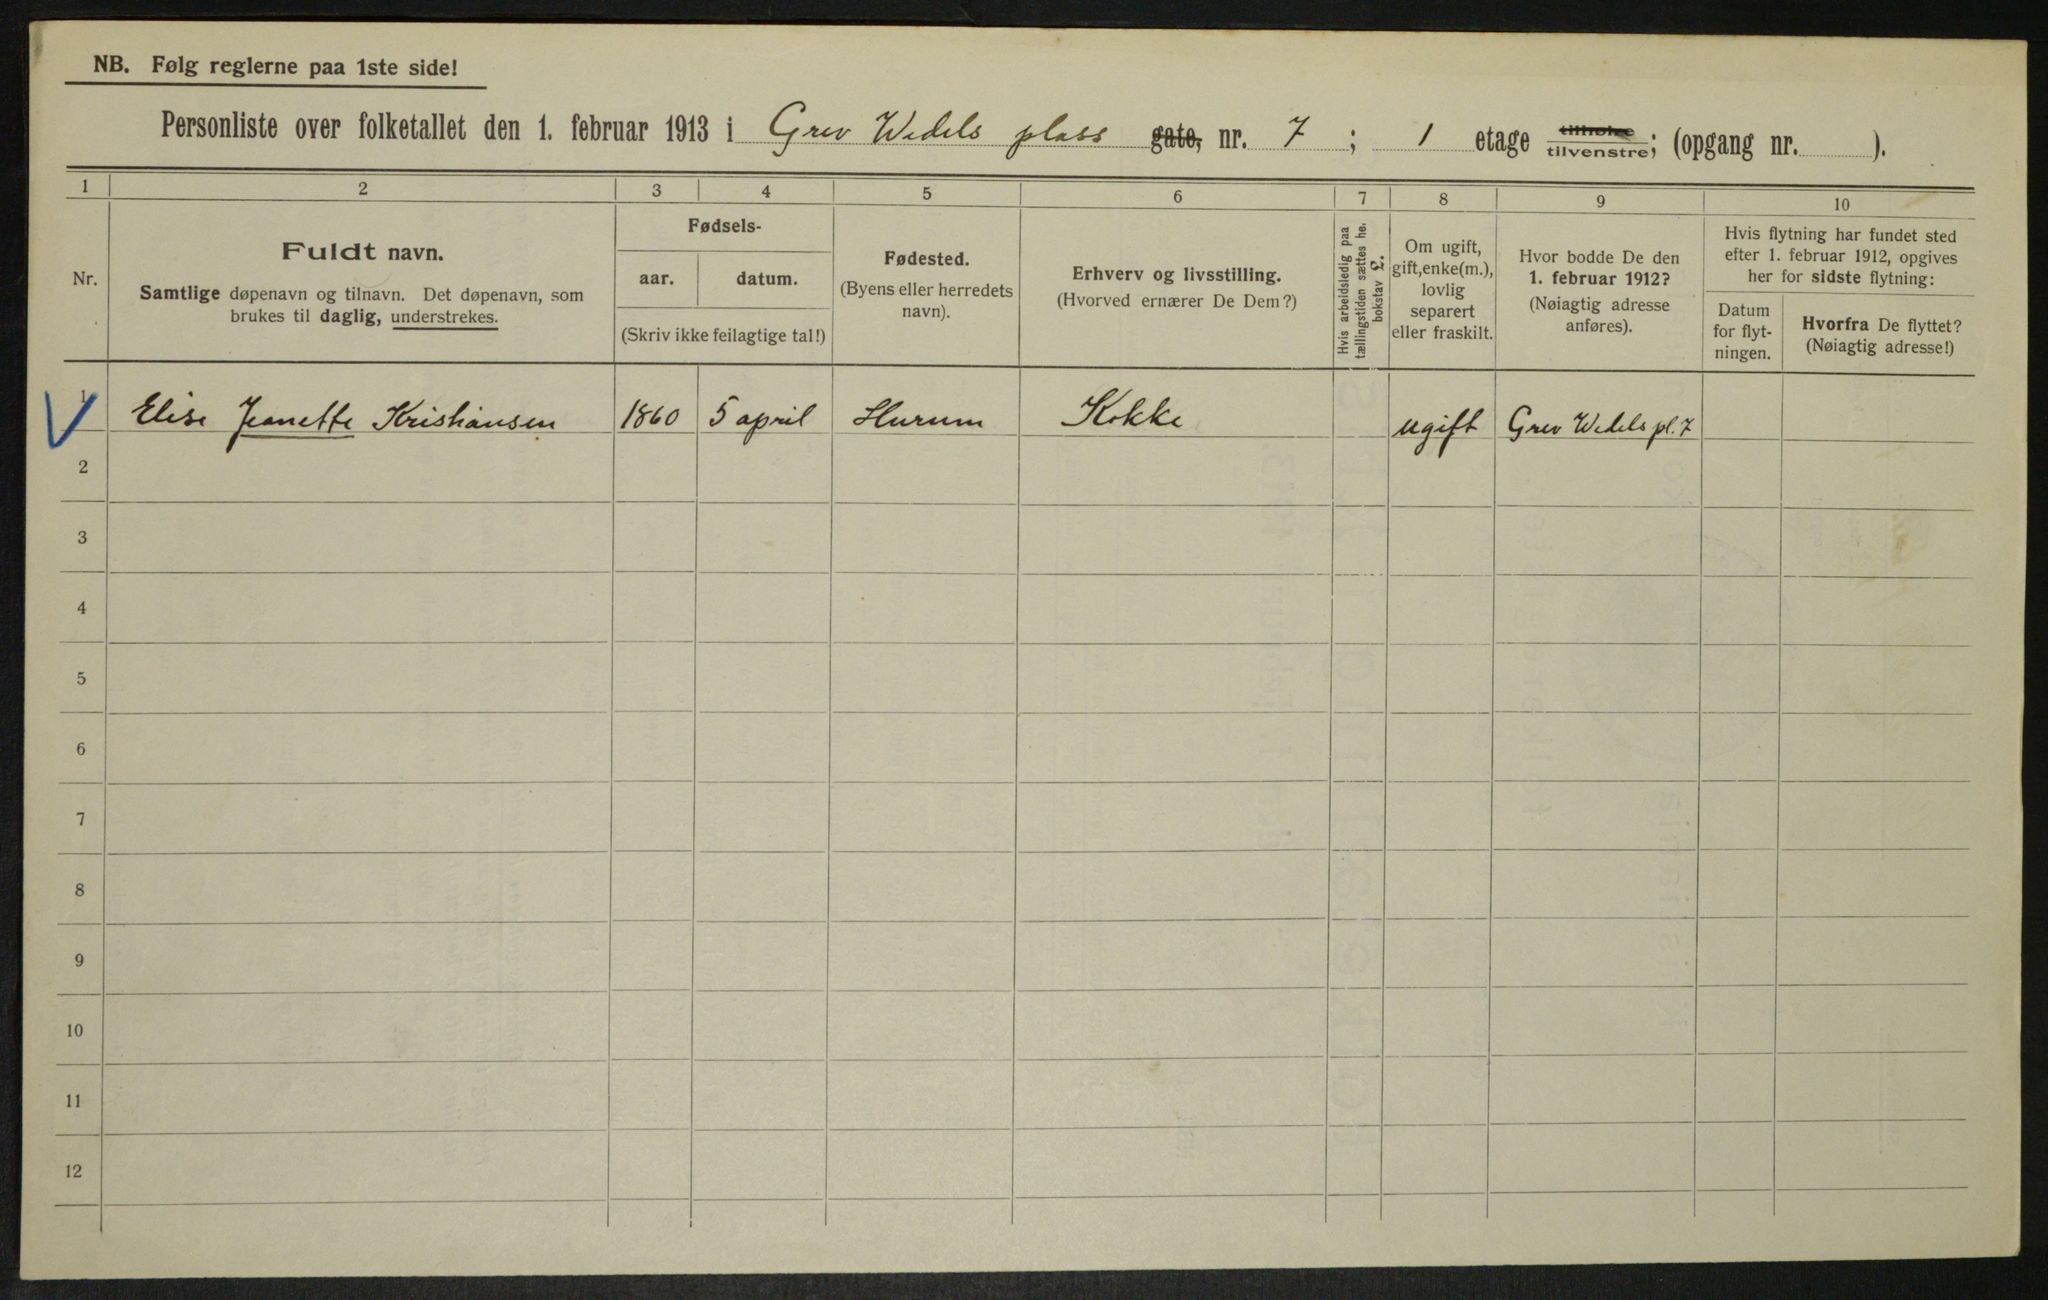 NB. Følg reglerne paa 1ste side!
Personliste over folketallet den 1. februar 1913 i Grev Wedels plass gate, nr. 7 ; 1 etage tilhøire tilvenstre; (opgang nr. ).
1 2 3 4 5 6 7 8 9 10
Nr.
Fuldt navn.
Samtlige døpenavn og tilnavn. Det døpenavn, som
brukes til daglig, understrekes.
Fødsels-
aar. datum.
(Skriv ikke feilagtige tal!)
Fødested.
(Byens eller herredets
navn).
Erhverv og livsstilling.
(Hvorved ernærer De Dem?)
Hvis arbeidsledig paa
tællingstiden sættes he.
bokstav L.
Om ugift,
gift, enke(m.),
lovlig
separert
eller fraskilt.
Hvor bodde De den
1. februar 1912?
(Nøiagtig adresse
anføres).
Hvis flytning har fundet sted
efter 1. februar 1912, opgives
her for sidste flytning:
Datum
for flyt-
ningen.
Hvorfra De flyttet?
(Nøiagtig adresse!)
1 Elise Jeanette Kristiansen 1860 5 april Hurum Kokke ugift Grev Wedels pl. 7
2
3
4
5
6
7
8
9
10
11
12